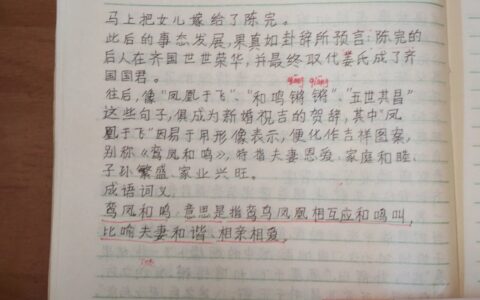 马上把女儿嫁给了陈完。
此后的事态发展,果真如卦辞所预言:陈完的
后人在齐国世世荣华,并最终取代姜氏成了齐
国国君。
qiāng qiāng
往后,像“凤凰于飞”、“和鸣锵锵”、“五世其昌”
这些句子,俱成为新婚祝吉的贺辞,其中“凤
凰于飞”因易于用形像表示,便化作吉祥图案,
别称《鸾凤和鸣》,特指夫妻恩爱、家庭和睦、
子孙繁盛、家业兴旺。
成语词义
鸾凤和鸣,意思是指鸾鸟凤凰相互应和鸣叫,
比喻夫妻和谐、相亲相爱。